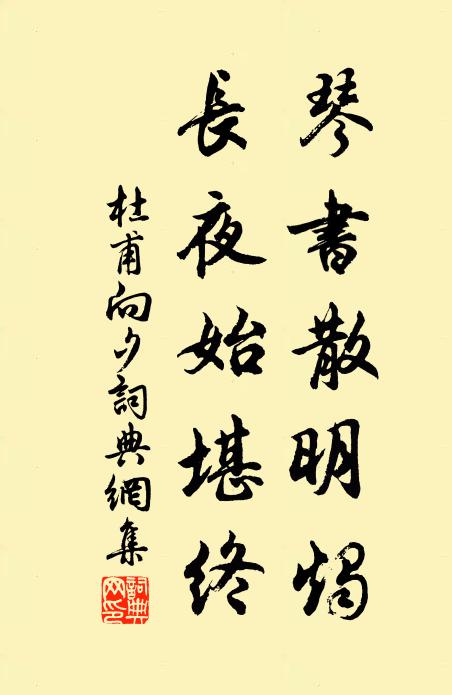 琴書散明燭
長夜始堪終
杜甫向夕詞典網集
詞典網印